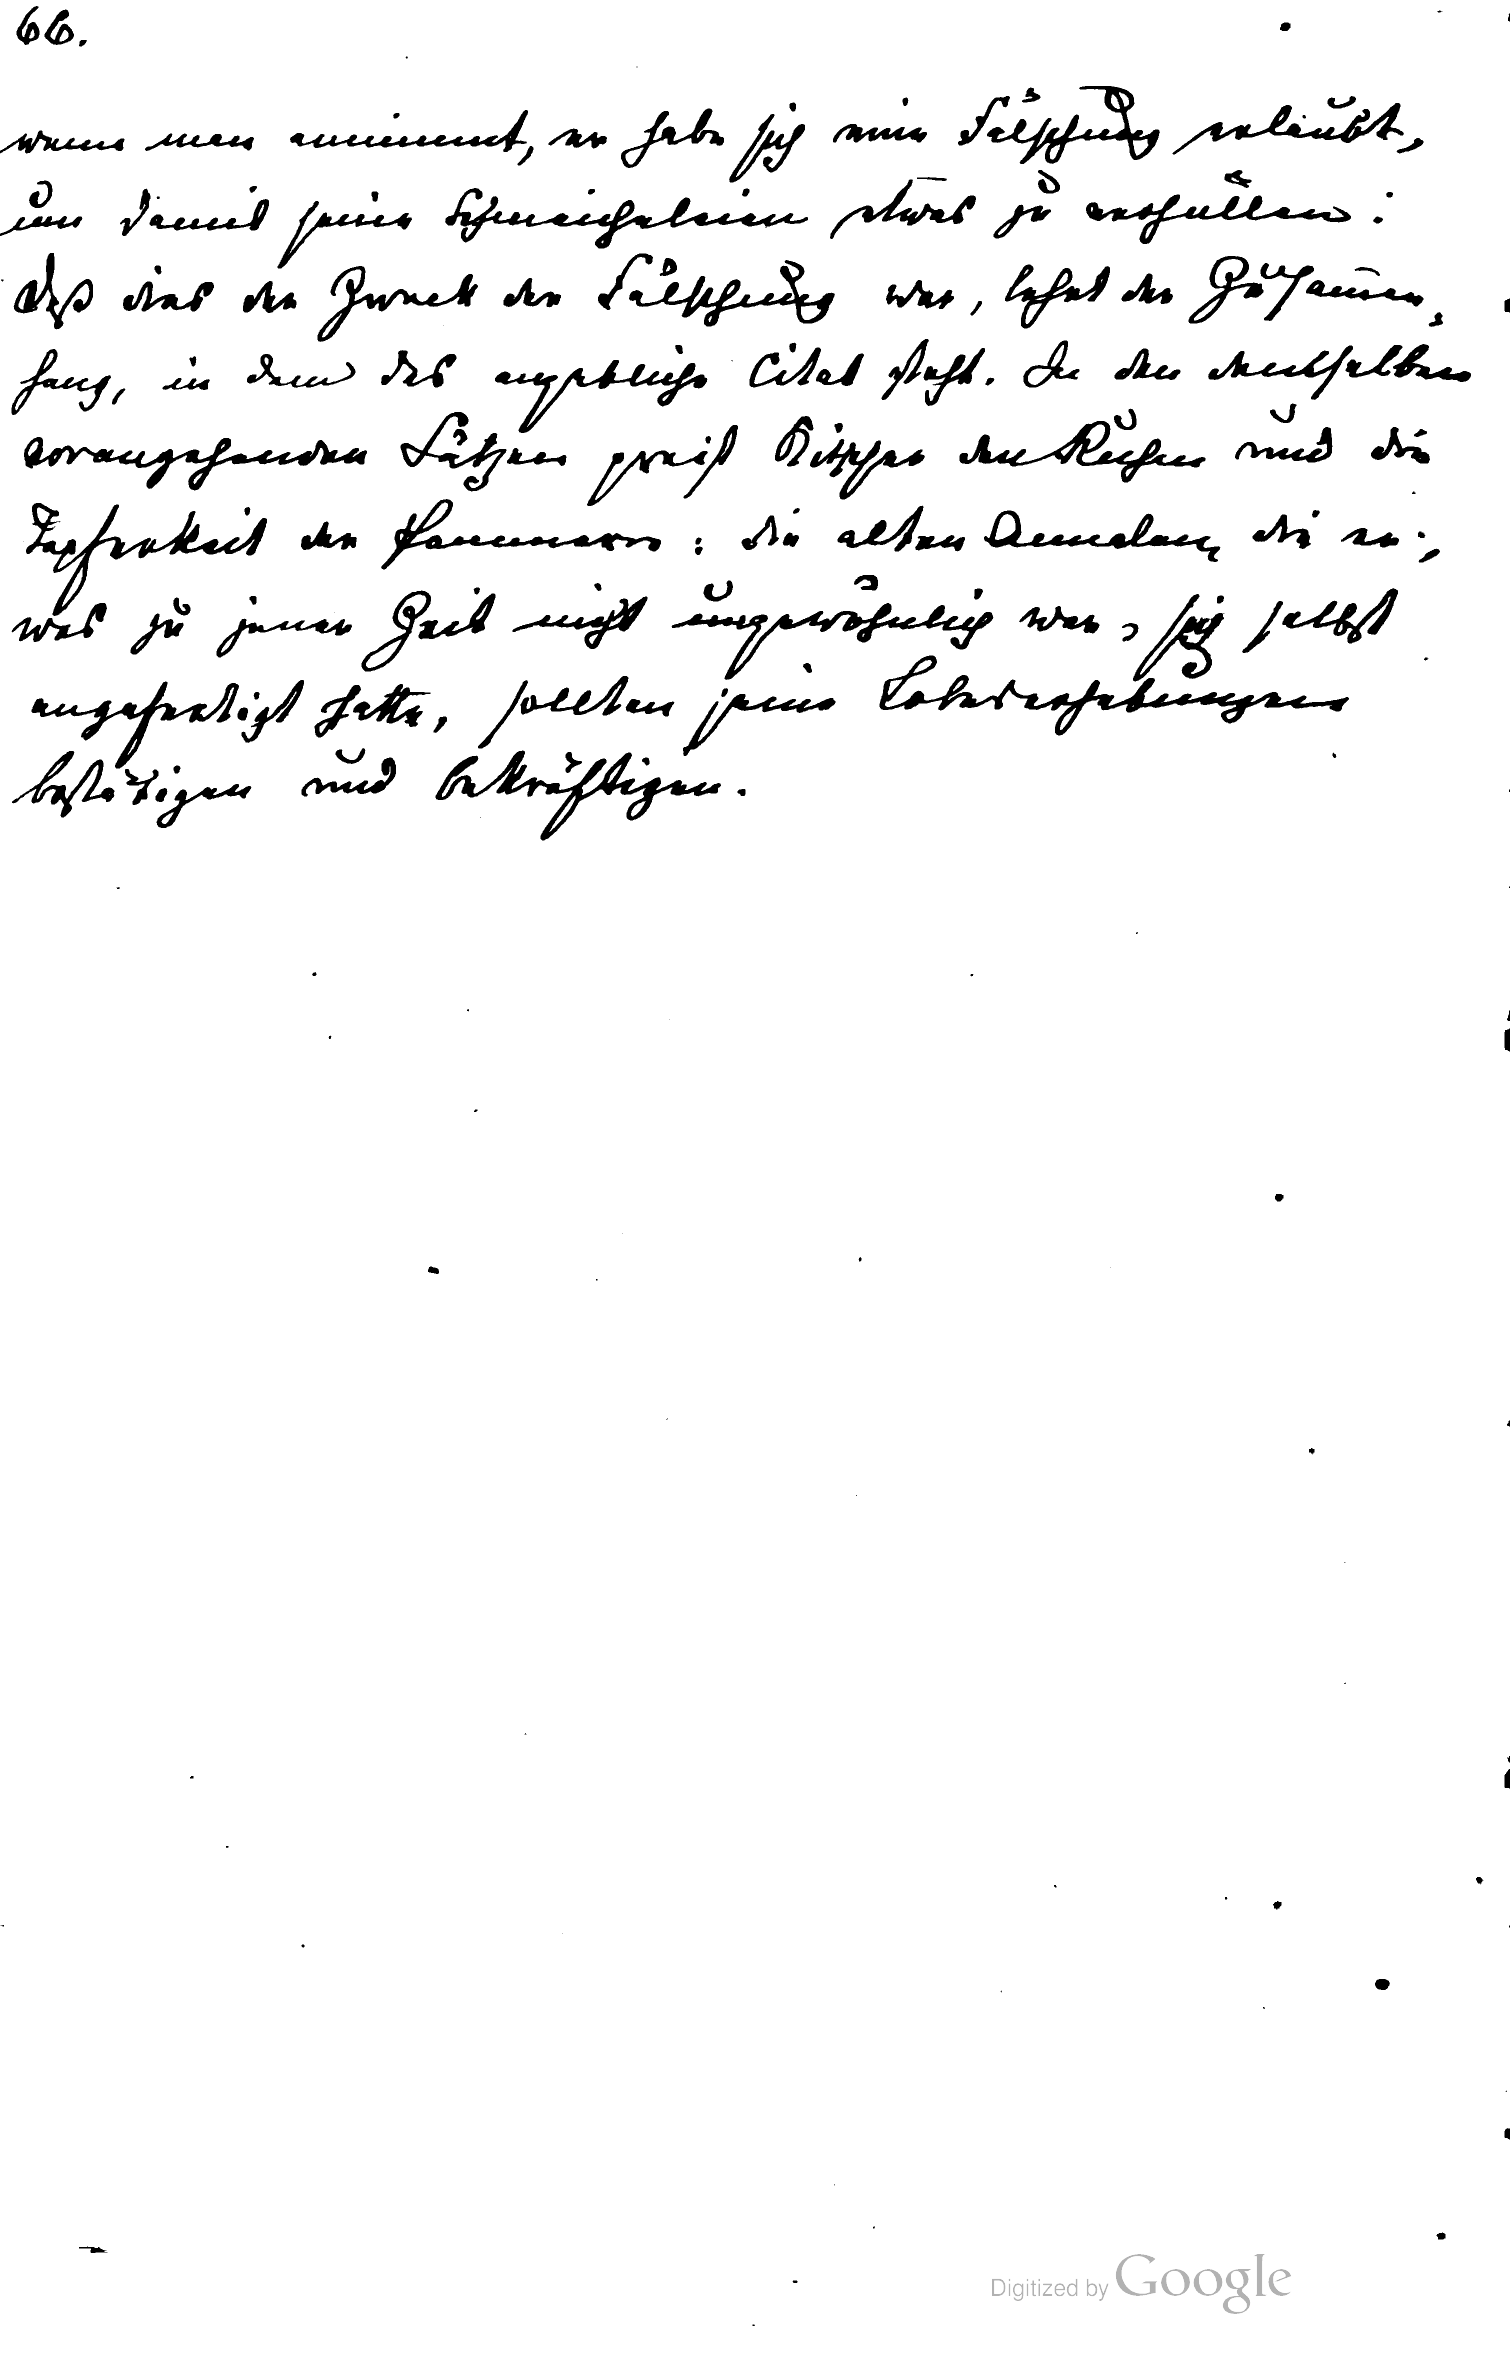 66.
wenn man annimmt, er habe sich eine Fälschung erlaubt,
um damit seine Schmeicheleien etwas zu verhüllen:
daß dies der Zweck der Fälschung war, lehrt der Zusam̄en-
hang, in dem das angebliche Citat steht. In den demselben
vorangehenden Sätzen preist den Ruhm und die
Tapferkeit der Pommern: die alten Annalen, die er,
was zu jener Zeit nicht ungewöhnlich war, sich selbst
angefertigt hatte, sollten seine Lobeserhebungen
bestätigen und bekräftigen.
Digitized by Google